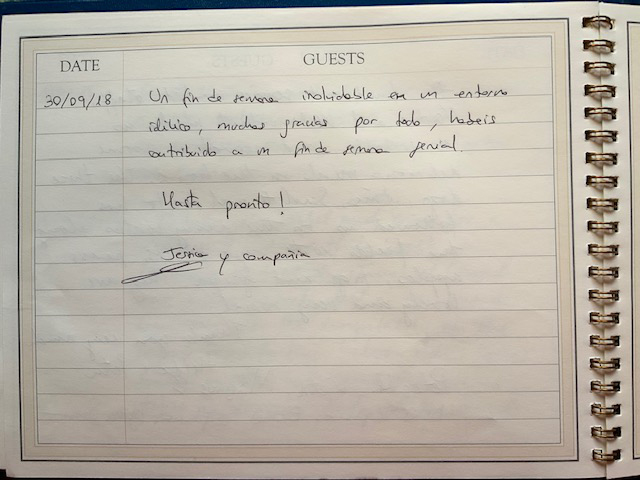 DATE GUESTS
30/09/18 Un fin de semana inolvidable en un entorno
idílico, muchas gracias por todo, habeis
contribuido a un fin de semana genial.
Hasta pronto!
Jessica y compañia